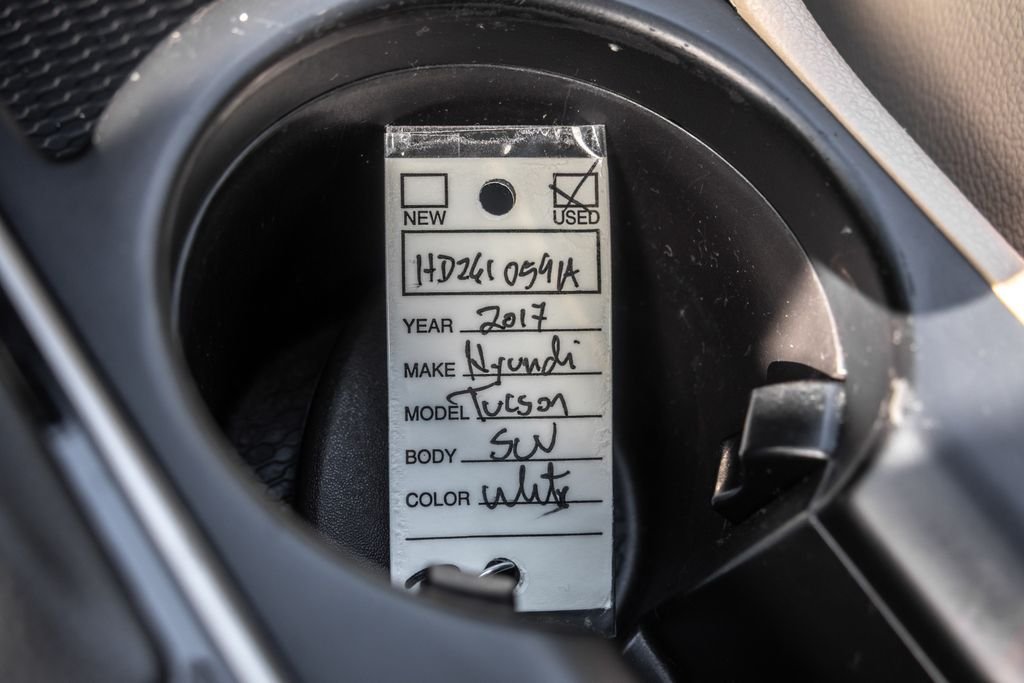 NEW USED
HD261 0591A
YEAR 2017
MAKE Hyundi
MODEL Tucson
BODY SUV
COLOR white